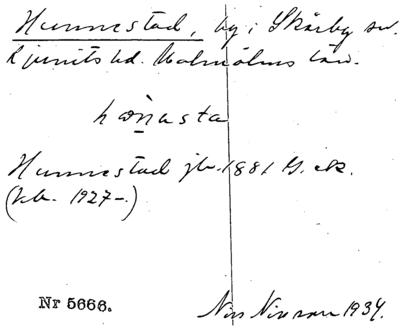 Hunnestad, by i Skårby sn.
Ljunits hd. Malmöhus län.
hɷn̠asta
Hunnestad jb. 1881 G. ek.
(kb. 1927-.)
Nr 5666.
Nils Nilsson 1934.